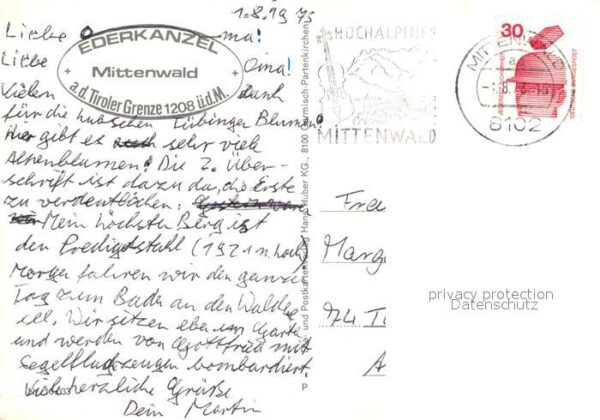 1.8.1973
Liebe O ma!
EDERKANZEL
Mittenwald
a.d. Tiroler Grenze 1208 ü.d.M.
Liebe Oma!
Vielen dank
für die hübschen Tübinger Blumen
Hier gibt es sehr viele
Alpenblumen! Die 2. Über-
schrift ist dazu da, die Erste
zu verdeutlichen.
Mein höchster Berg ist
der Predigtstuhl (1921 m hoch)
Morgen fahren wir den ganzen
Tag zum Baden an den
Wir sitzen eben im Garten
und werden von Gottfried mit
Segelflugzeugen bombardiert.
Viele herzliche Grüße
Dein Martin
HOCHALPINE
MITTENWALD
MITTENWALD
8102
30
DEUTSCHE BUNDESPOST
und Postkartenverlag Hans Huber KG., 8100 Garmisch-Partenkirchen
P
Frau
Marg
74 T
A
privacy protection
Datenschutz